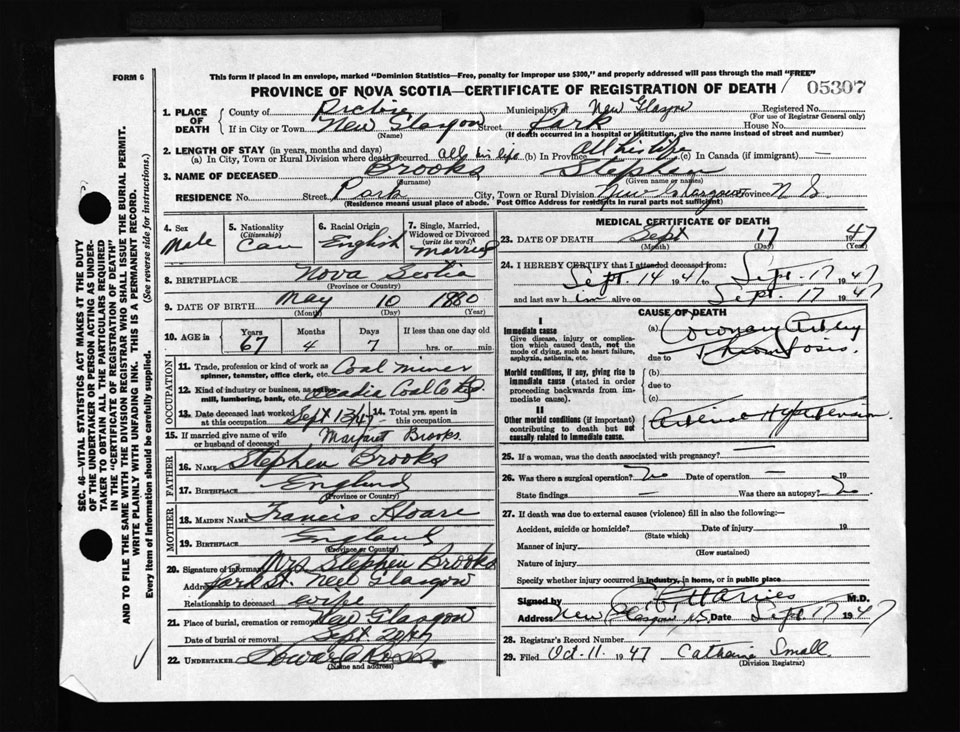 FORM 6
This form if placed in an envelope, marked "Dominion Statistics—Free, penalty for improper use $300," and properly addressed will pass through the mail "FREE"
PROVINCE OF NOVA SCOTIA—CERTIFICATE OF REGISTRATION OF DEATH
05307
SEC. 46—VITAL STATISTICS ACT MAKES IT THE DUTY
OF THE UNDERTAKER OR PERSON ACTING AS UNDER-
TAKER TO OBTAIN ALL THE PARTICULARS REQUIRED
IN THE "CERTIFICATE OF REGISTRATION OF DEATH"
AND TO FILE THE SAME WITH THE DIVISION REGISTRAR WHO SHALL ISSUE THE BURIAL PERMIT.
WRITE PLAINLY WITH UNFADING INK. THIS IS A PERMANENT RECORD.
Every item of information should be carefully supplied. (See reverse side for instructions.)
1. PLACE OF DEATH
County of Pictou Municipality New Glasgow Registered No.
(For use of Registrar General only)
If in City or Town New Glasgow Street Park House No.
(Name) (If death occurred in a hospital or institution, give the name instead of street and number)
2. LENGTH OF STAY (in years, months and days)
(a) In City, Town or Rural Division where death occurred All his life (b) In Province All his life (c) In Canada (if immigrant) —
3. NAME OF DECEASED Brooks Stephen
(Surname) (Given name or names)
RESIDENCE No. Street Park City, Town or Rural Division New Glasgow Province N S
(Residence means usual place of abode. Post Office Address for residents in rural parts not sufficient)
4. Sex Male
5. Nationality (Citizenship) Can
6. Racial Origin English
7. Single, Married, Widowed or Divorced (write the word) Married
8. BIRTHPLACE Nova Scotia
(Province or Country)
9. DATE OF BIRTH May 10 1880
(Month) (Day) (Year)
10. AGE in Years 67 Months 4 Days 7 If less than one day old hrs. or min.
OCCUPATION
11. Trade, profession or kind of work as spinner, teamster, office clerk, etc. Coal miner
12. Kind of industry or business, as cotton mill, lumbering, bank, etc. Acadia Coal Co
13. Date deceased last worked at this occupation Sept 13/47 14. Total yrs. spent in this occupation
15. If married give name of wife or husband of deceased Margaret Brooks
FATHER
16. NAME Stephen Brooks
17. BIRTHPLACE England
(Province or Country)
MOTHER
18. MAIDEN NAME Francis Hoare
19. BIRTHPLACE England
(Province or Country)
20. Signature of informant Mrs Stephen Brooks
Address Park St. New Glasgow
Relationship to deceased wife
21. Place of burial, cremation or removal New Glasgow
Date of burial or removal Sept 20th
22. UNDERTAKER
(Name and address)
MEDICAL CERTIFICATE OF DEATH
23. DATE OF DEATH Sept 17 1947
(Month) (Day) (Year)
24. I HEREBY CERTIFY that I attended deceased from:
Sept. 14 1947 to Sept. 17 1947
and last saw him alive on Sept. 17 1947
CAUSE OF DEATH
I
Immediate cause
Give disease, injury or complication which caused death, not the mode of dying, such as heart failure, asphyxia, asthenia, etc.
(a) Coronary Artery
due to Thrombosis.
Morbid conditions, if any, giving rise to immediate cause (stated in order proceeding backwards from immediate cause).
(b)
due to
(c)
II
Other morbid conditions (if important) contributing to death but not causally related to immediate cause.
Arterial Hypertension
25. If a woman, was the death associated with pregnancy? —
26. Was there a surgical operation? No Date of operation — 19
State findings — Was there an autopsy? No
27. If death was due to external causes (violence) fill in also the following:—
Accident, suicide or homicide? Date of injury 19
(State which)
Manner of injury
(How sustained)
Nature of injury
Specify whether injury occurred in industry, in home, or in public place
Signed by M.D.
Address New Glasgow, N.S. Date Sept 17 1947
28. Registrar's Record Number
29. Filed Oct. 11. 1947 Catharine Small
(Division Registrar)